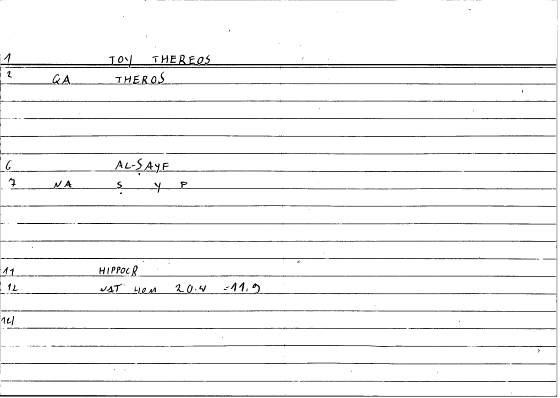 1 TOY THEREOS
2 GA THEROS
6 AL-ṢAYF
7 NA Ṣ Y F
11 HIPPOCR
12 NAT HOM 20.4 =11.9
14